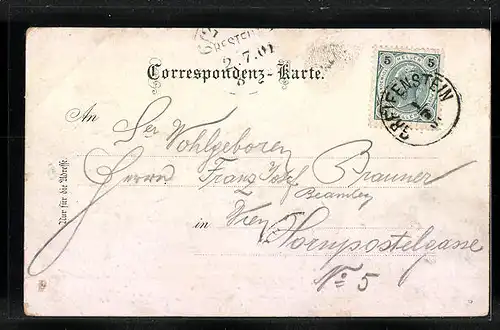 2.7.01
8
5 5
GREIFENSTEIN
Correspondenz-Karte.
An
Ser Wohlgeboren
Herrn Franz Josef Brauner
Beamter
in Wien
Hornpostelgasse
No 5
Nur für die Adresse.